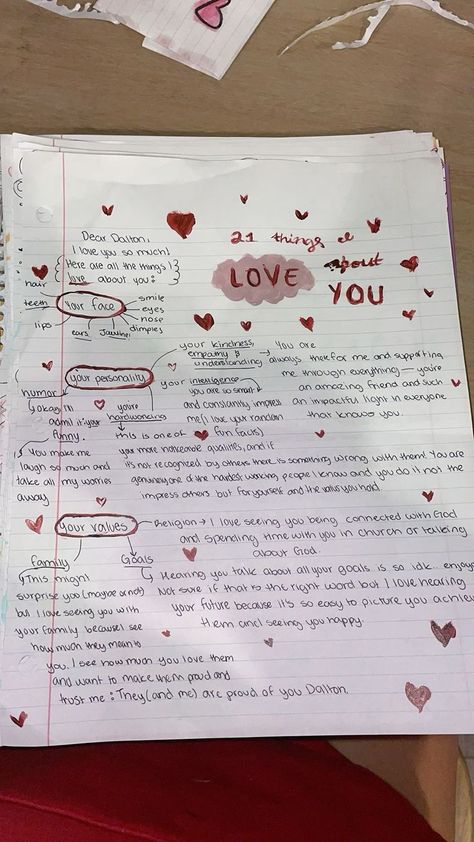 21 things I
LOVE about
YOU
Dear Dalton,
I love you so much!
Here are all the things I
love about you:
your face
hair
teeth
lips
ears
Jawline
dimples
nose
eyes
smile
your personality
your kindness,
empathy &
understanding → You are
always there for me and supporting
me through everything — you're
an amazing friend and such
an impactful light in everyone
that knows you.
your intelligence
you are so smart
and constantly impress
me (I love your random
fun facts)
you're
hardworking
this is one of
your more noticeable qualities, and if
it's not recognized by others there is something wrong with them! You are
genuinely one of the hardest working people I know and you do it not the
impress others but for yourself and the values you hold.
humor
okay I'll
admit it your
funny.
You make me
laugh so much and
take all my worries
away
your values
Religion → I love seeing you being connected with God
and spending time with you in church or talking
about God.
Goals
Hearing you talk about all your goals is so idk.. enjoya
Not sure if that is the right word but I love hearing
your future because it's so easy to picture you achiev
them and seeing you happy.
family
This might
surprise you (maybe or not)
but I love seeing you with
your family because I see
how much they mean to
you. I see how much you love them
and want to make them proud and
trust me: They (and me) are proud of you Dalton.